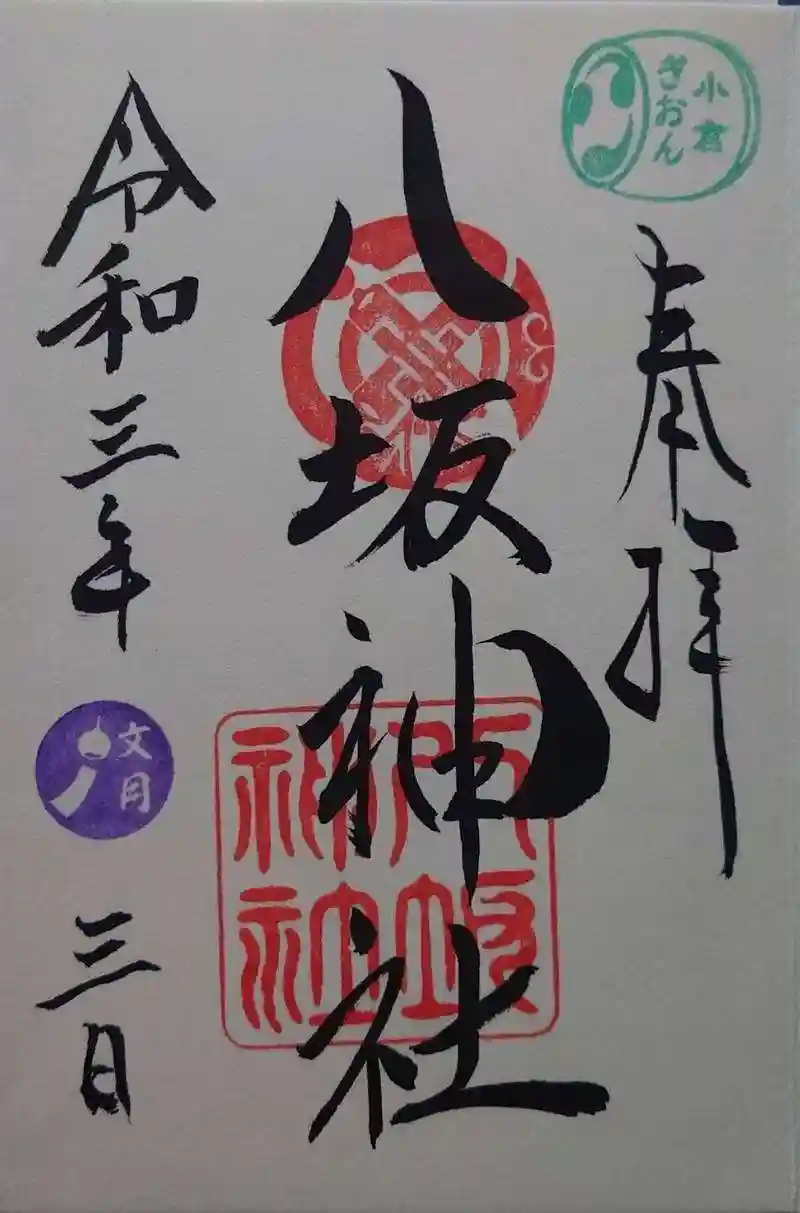 小倉
ぎおん
奉拝
八坂神社
八坂
神社
令和三年
文月
三日